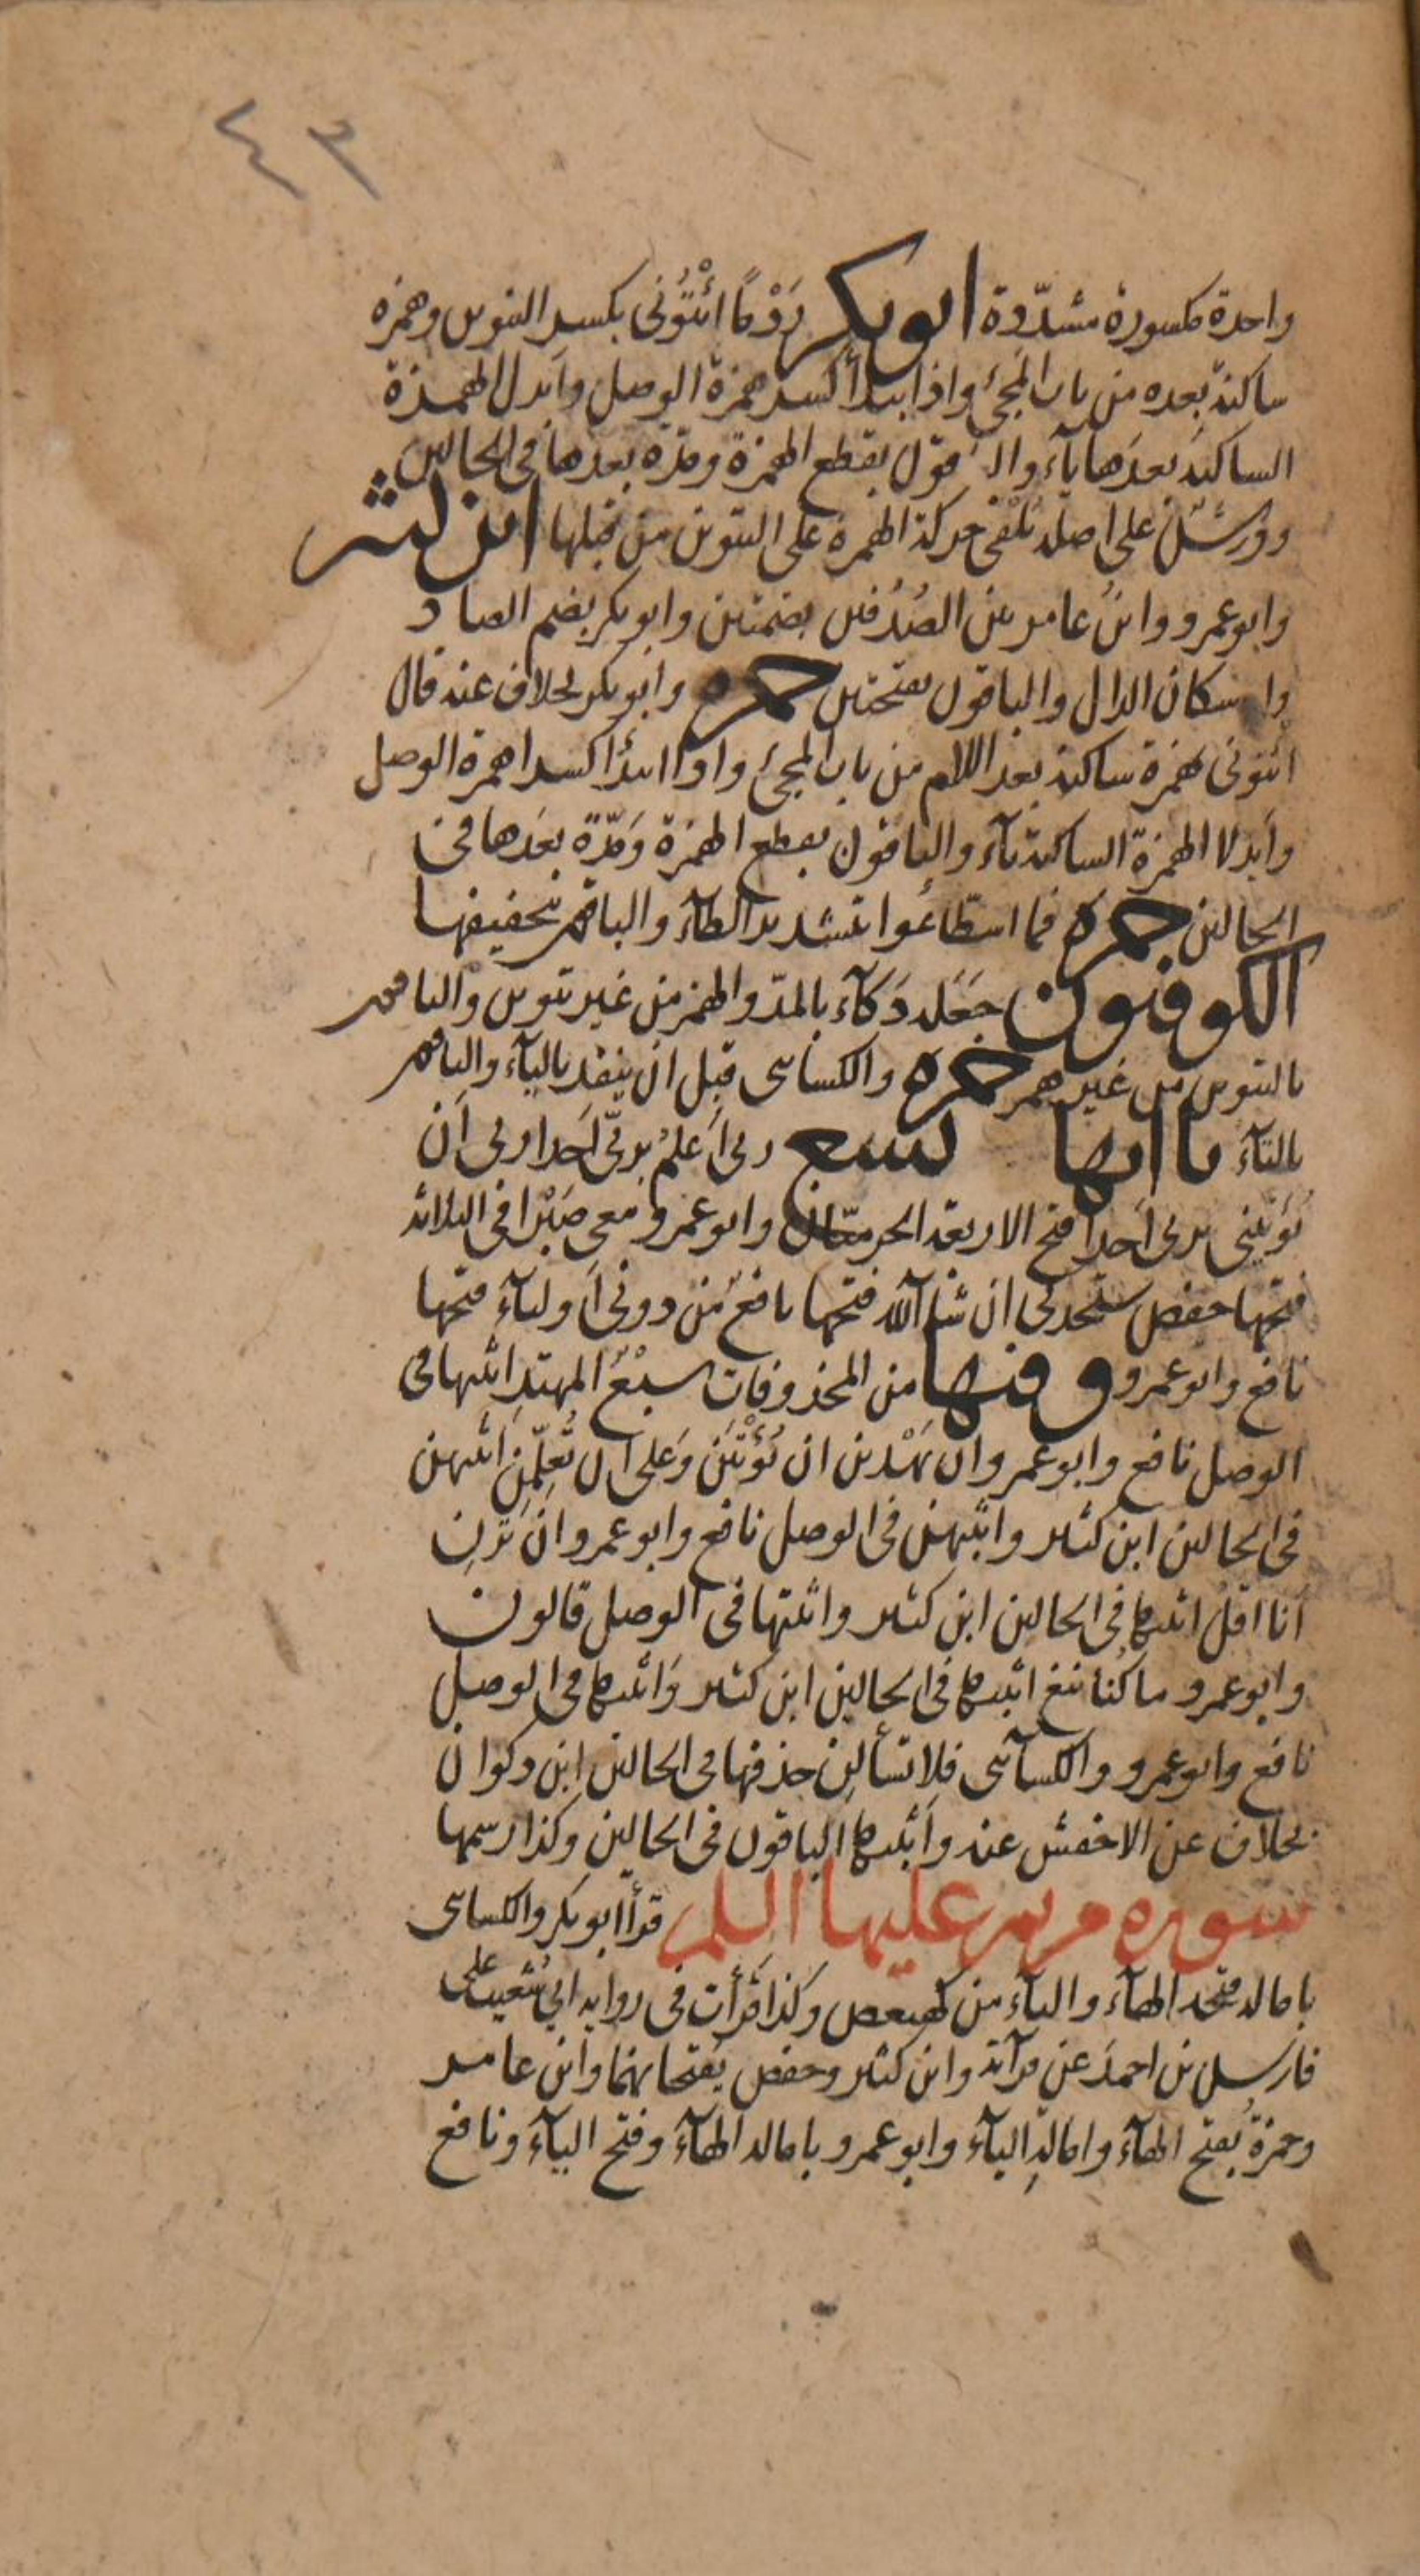 ٤٣
واحدة مكسورة مشدّدة ابو بكر رَدْمًا ائْتُوْنى بكسر التنوين وهمزة
ساكنة بعده من باب المجئ واذا ابتدأ كسر همزة الوصل وابدل الهمزة
الساكنة بعدها ياء والباقون بقطع الهمزة ومدّة بعدها فى الحالين
وورشٌ على اصله يُلْقى حركة الهمزة على التنوين من قبلها ابن كثير
وابو عمرو وابنُ عامر بين الصُدُفين بضمتين وابو بكر بضم الصاد
واسكان الدال والباقون بفتحتين حمزه وابو بكر بخلاف عنه قال
ائتونى بهمزة ساكنة بعد اللام من باب المجئ واذا ابتدأا كسرا همزة الوصل
وابدلا الهمزة الساكنة ياء والباقون بقطع الهمزة ومَدّةٍ بعدها فى
الحالين حمزه فما اسطّاعُوا بتشديد الطآء والباقون بتخفيفها
الكوفيون جَعَله دَكآء بالمدّ والهمز من غير تنوين والباقون
بالتنوين من غير همز حمزه والكسائى قبل ان ينفد باليآء والباقون
بالتآء ياآتها تسع ربى اَعلم بربّى اَحدا ربى اَن
يُؤتينى بربى اَحدا فتح الاربعة الحرميّان وابو عمرو معى صَبْرا فى الثلاثة
فتحها حفص ستجدنى ان شآ الله فتحها نافعٌ من دونى اَوليآء فتحها
نافع وابو عمرو وفيها من المحذوفات سبْعٌ المهتدِ اثبتها فى
الوصل نافع وابو عمرو ان يَهْدين ان يُؤْتيَنِ وعَلى ان تُعلّمَنِ اثبتهن
فى الحالين ابن كثير واثبتهن فى الوصل نافع وابو عمرو ان تَرَنِ
انا اقلّ اثبتها فى الحالين ابن كثير واثبتها فى الوصل قالون
وابو عمرو ما كُنا نبغ اثبتها فى الحالين ابن كثير واثبتها فى الوصل
نافع وابو عمرو والكسآئى فلا تسألنِ حذفها فى الحالين ابن ذكوان
بخلاف عن الاخفش عنه واثبتها الباقون فى الحالين وكذا رسمها
سورة مريم عليها السلم قرأ ابو بكر والكسائى
بامالة فتحة الهآء واليآء من كهيعص وكذا قَرأت فى رواية ابى شُعيب على
فارس بن احمدَ عن قرآءته وابن كثير وحفص بفتحانهما وابن عامر
وحمزةُ بفتح الهآء وامالةِ اليآء وابو عمرو بامالة الهآء وفتح اليآء ونافع